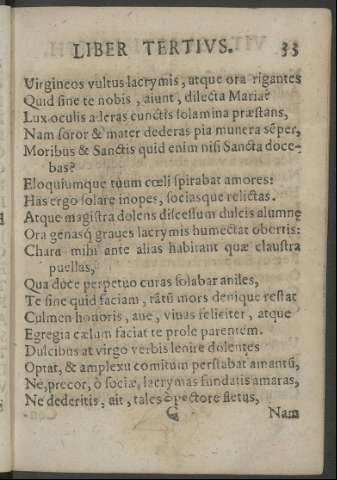 LIBER TERTIVS. 33
Virgineos vultus lacrymis, atque ora rigantes
Quid sine te nobis, aiunt, dilecta Mariæ
Lux oculis aderas cunctis solamina præstans,
Nam soror & mater dederas pia munera sẽper,
Moribus & Sanctis quid enim nisi Sancta doce-
bas?
Eloquiumque tuum cœli spirabat amores:
Has ergo solare inopes, sociasque relictas.
Atque magistra dolens discessum dulcis alumnę
Ora genasq́ graues lacrymis humectat obertis:
Chara mihi ante alias habitant quæ claustra
puellas,
Qua duce perpetuo curas solabar aniles,
Te sine quid faciam, tātũ mors denique restat
Culmen honoris, aue, viuas feliciter, atque
Egregia cælum faciat te prole parentem.
Dulcibus at virgo verbis lenire dolentes
Optat, & amplexu comitum perstabat amantũ,
Ne, precor, ò sociæ, lacrymas fundatis amaras,
Ne dederitis, ait, tales è pectore fletus,
C Nam